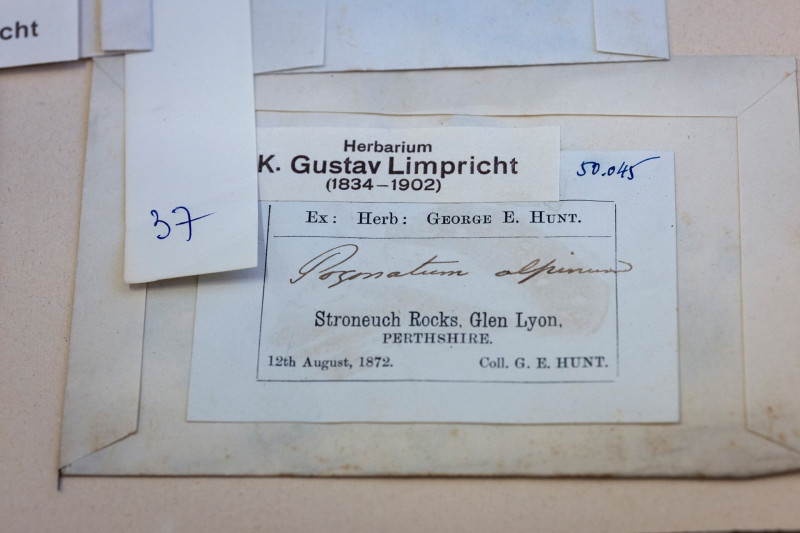 cht
Herbarium
K. Gustav Limpricht
(1834–1902)
50.045
37
Ex: Herb: GEORGE E. HUNT.
Pogonatum alpinum
Stroneuch Rocks, Glen Lyon,
PERTHSHIRE.
12th August, 1872. Coll. G. E. HUNT.